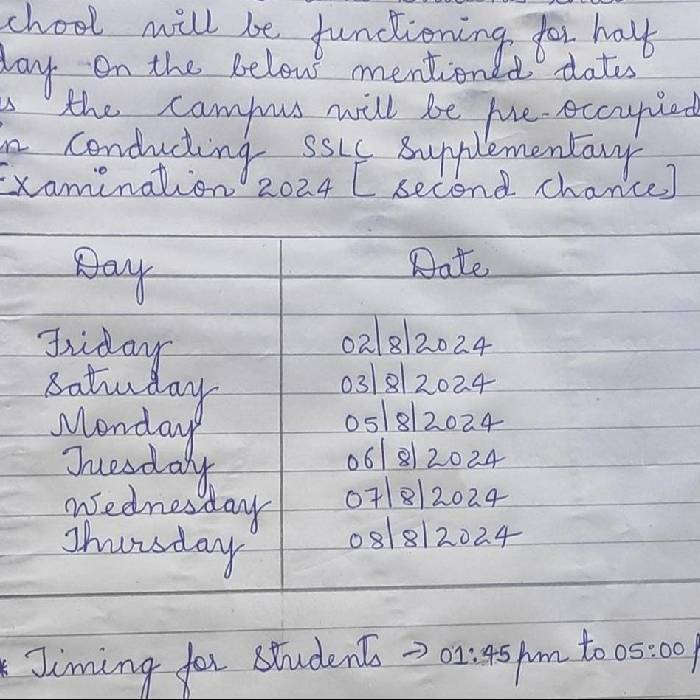 chool will be functioning for half
day on the below mentioned dates
s the campus will be pre-occupied
n conducting SSLC Supplementary
Examination 2024 [second chance]
Day Date
Friday 02/8/2024
Saturday 03/8/2024
Monday 05/8/2024
Tuesday 06/8/2024
Wednesday 07/8/2024
Thursday 08/8/2024
* Timing for students → 01:45 pm to 05:00 p